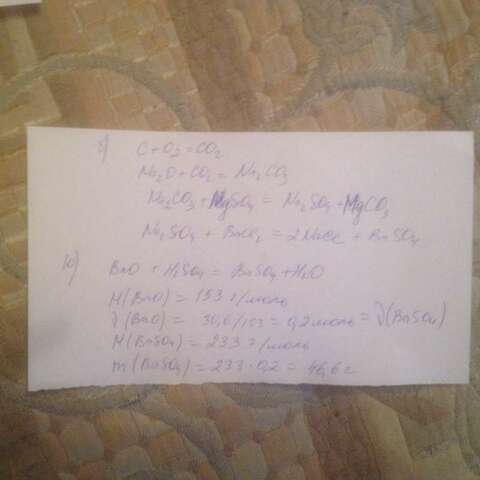 9) C + O2 = CO2
Na2O + CO2 = Na2CO3
Na2CO3 + MgSO4 = Na2SO4 + MgCO3
Na2SO4 + BaCl2 = 2NaCl + BaSO4
10)
BaO + H2SO4 = BaSO4 + H2O
M(BaO) = 153 г/моль
ν(BaO) = 30,6/153 = 0,2 моль = ν(BaSO4)
M(BaSO4) = 233 г/моль
m(BaSO4) = 233 · 0,2 = 46,6 г